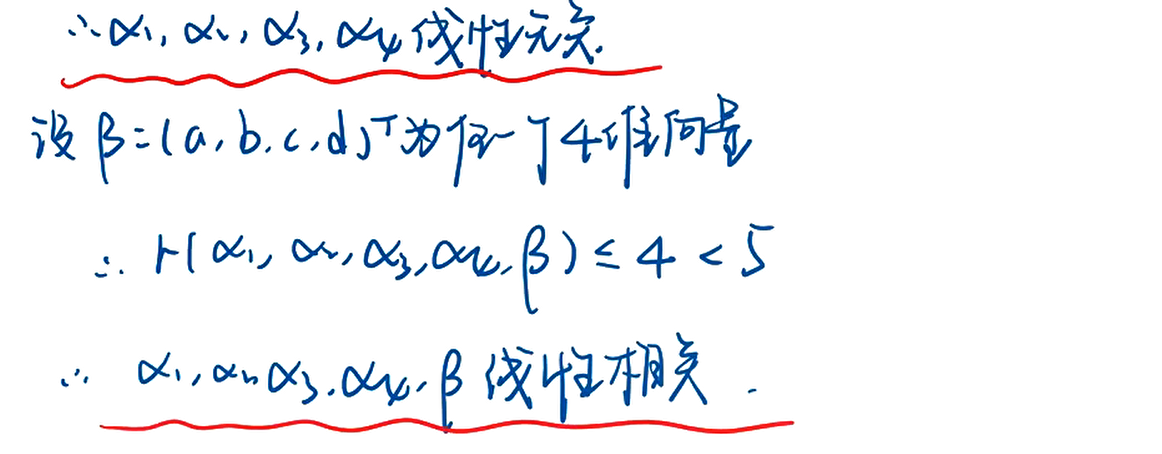 ∴α₁, α₂, α₃, α₄线性无关.
设β=(a, b, c, d)ᵀ为任一个4维向量
∴ r(α₁, α₂, α₃, α₄, β) ≤ 4 < 5
∴ α₁, α₂, α₃, α₄, β 线性相关.